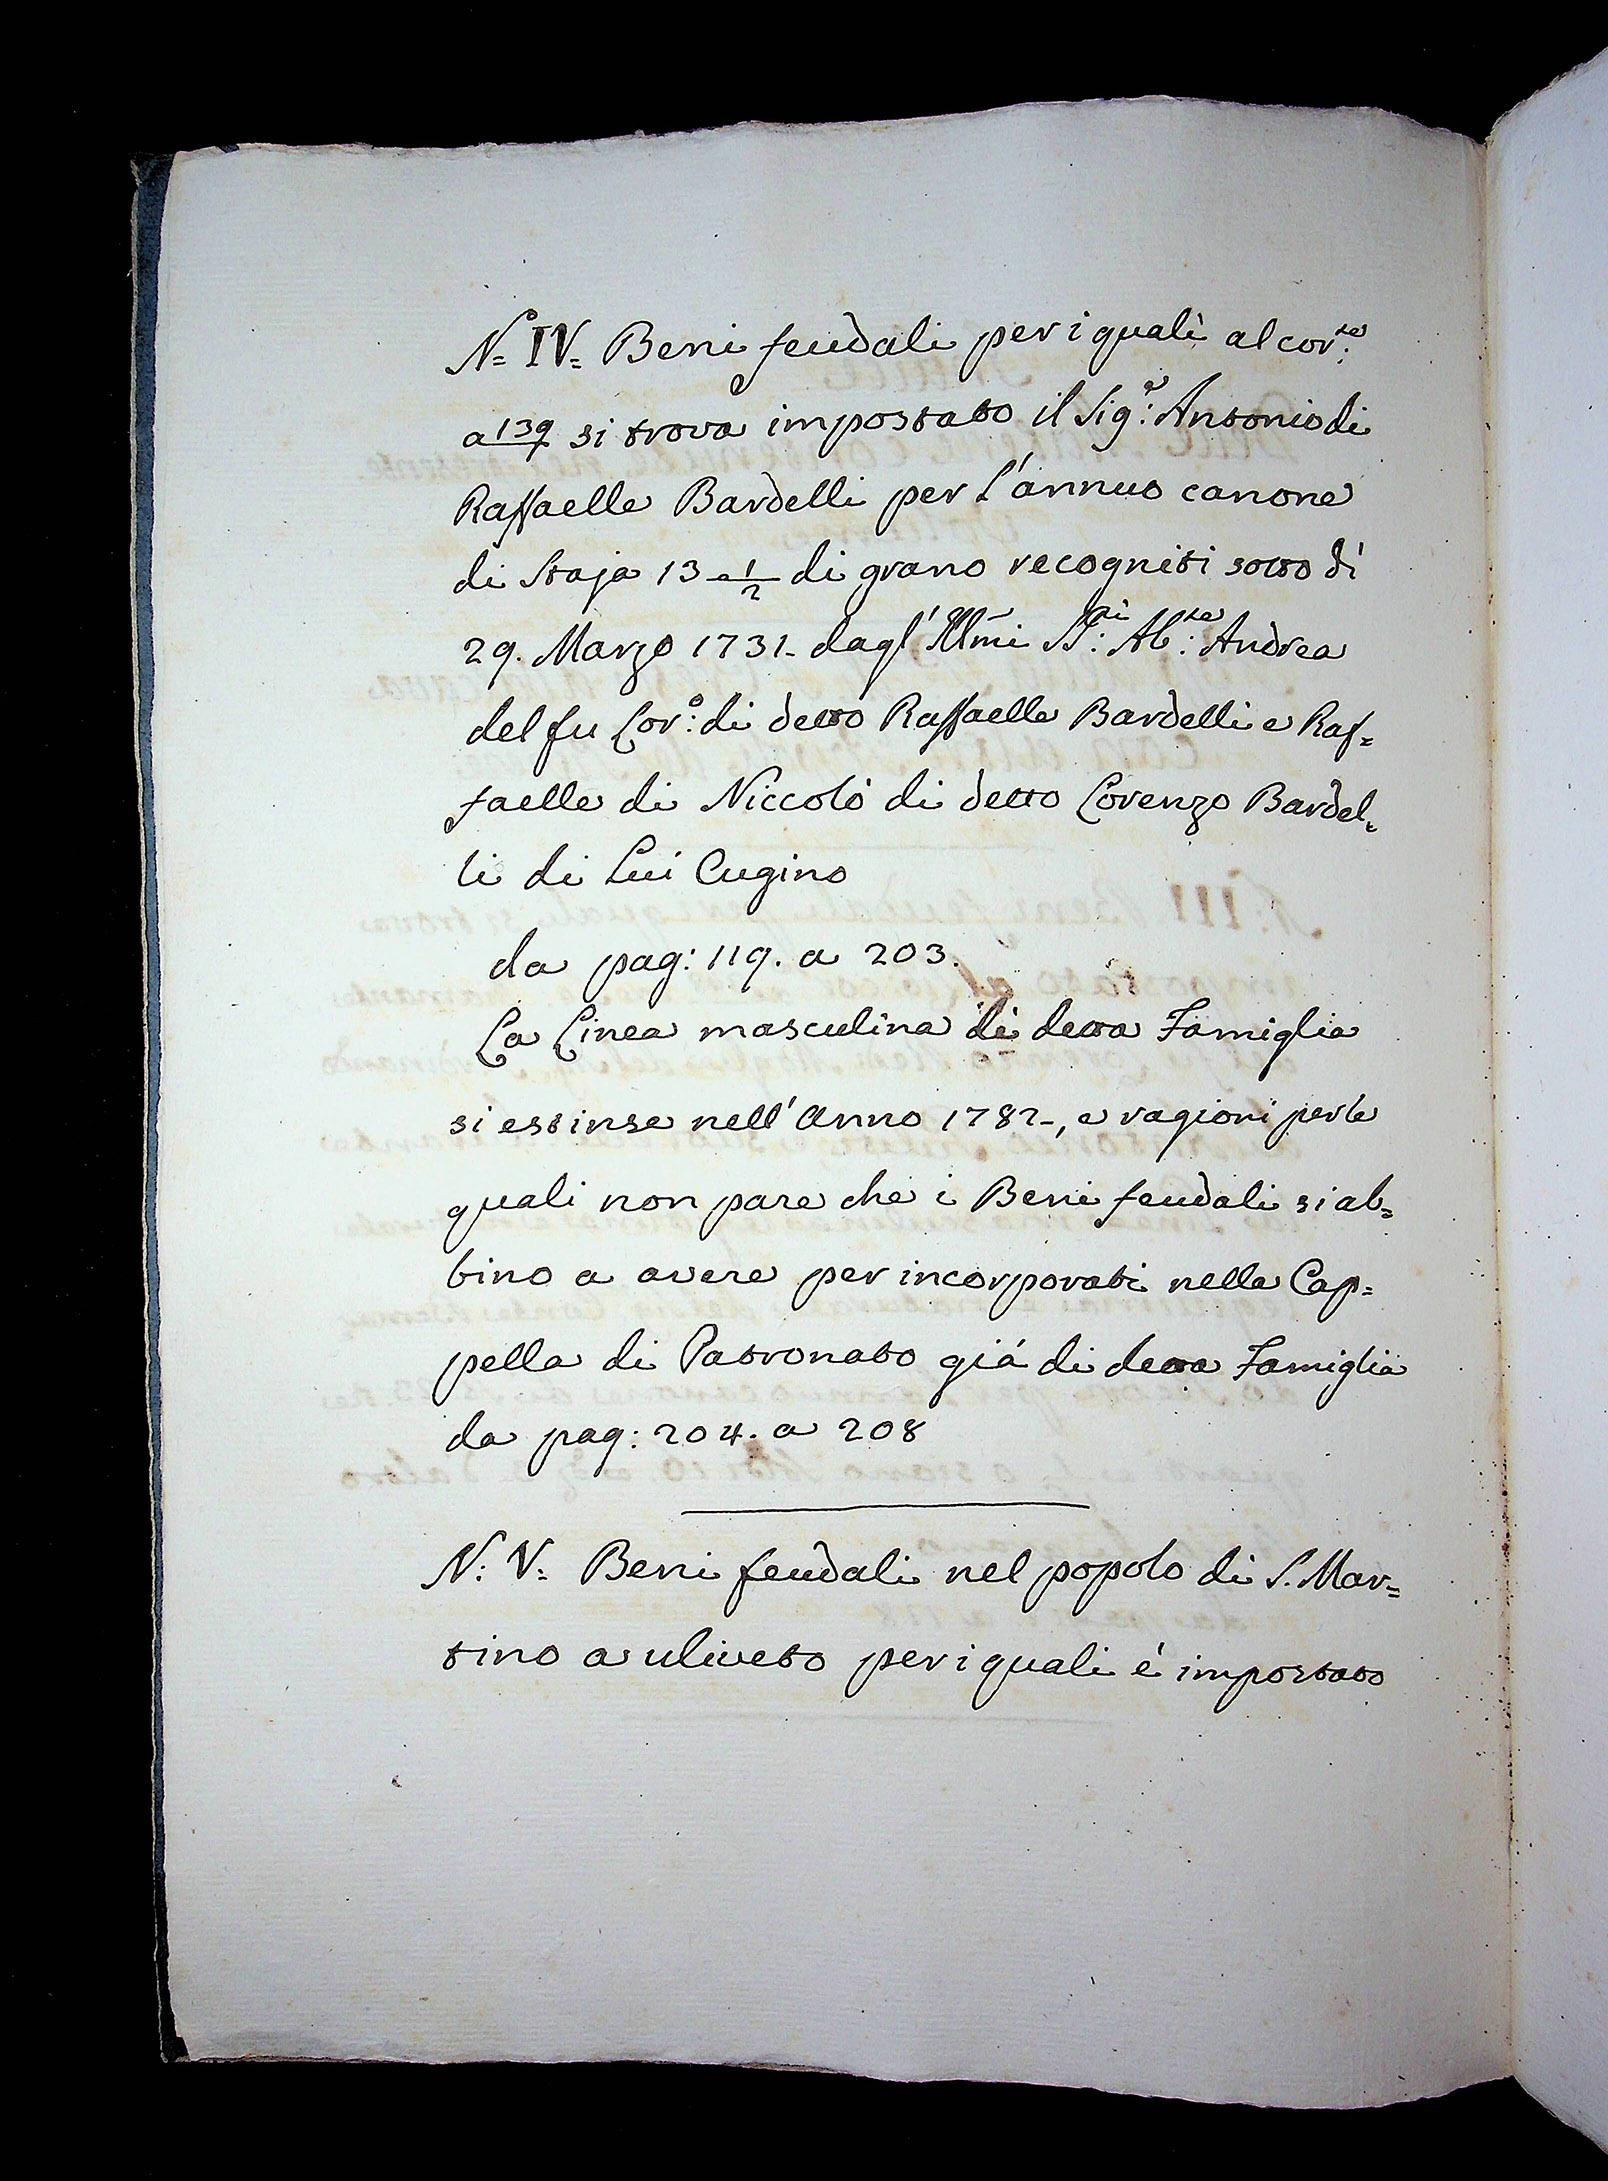 N.º IV. Beni feudali per i quali al cor.te
a 139 si trova impostato il Sig.e: Antonio di
Raffaelle Bardelli per l'annuo canone
di Staja 13 1/2 di grano recogniti sotto dì
29. Marzo 1731. dagl' Illmi SS.ri: Ab.te: Andrea
del fu Lor.o: di detto Raffaelle Bardelli e Raf=
faelle di Niccolò di detto Lorenzo Bardel=
li di Lui Cugino
da pag: 119. a 203.
La Linea masculina di detta Famiglia
si estinse nell'Anno 1782., e ragioni per le
quali non pare che i Beni feudali si ab=
bino a avere per incorporati nella Cap=
pella di Patronato già di detta Famiglia
da pag: 204. a 208
N: V: Beni feudali nel popolo di S. Mar=
tino a uliveto per i quali è impostato